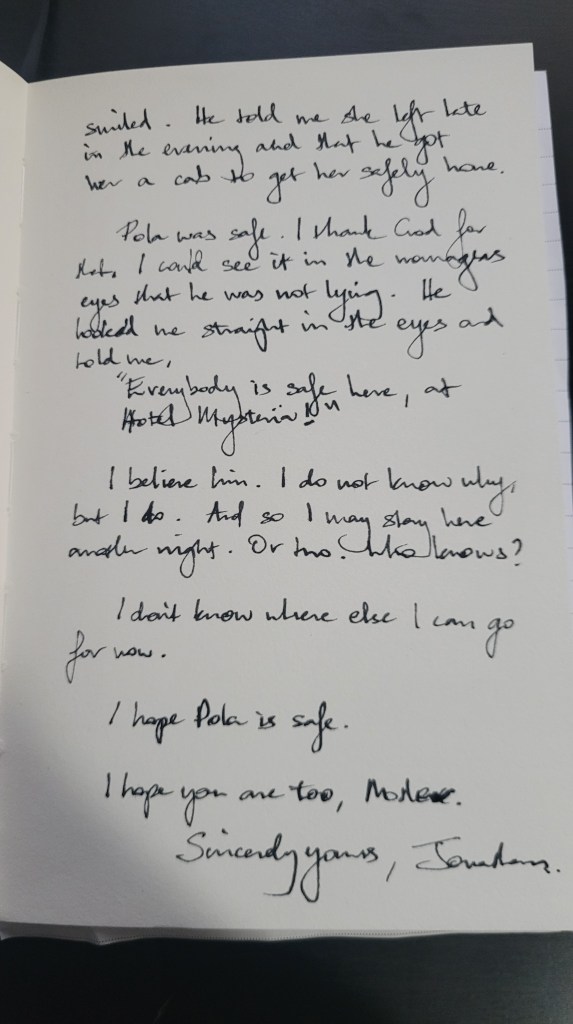 smiled. He told me she left late
in the evening and that he got
her a cab to get her safely home.
Pola was safe. I thank God for
that. I could see it in the managers
eyes that he was not lying. He
looked me straight in the eyes and
told me,
"Everybody is safe here, at
Hotel Mysteria!"
I believe him. I do not know why,
but I do. And so I may stay here
another night. Or two. Who knows?
I don't know where else I can go
for now.
I hope Pola is safe.
I hope you are too, Mother.
Sincerely yours, Jonathan.